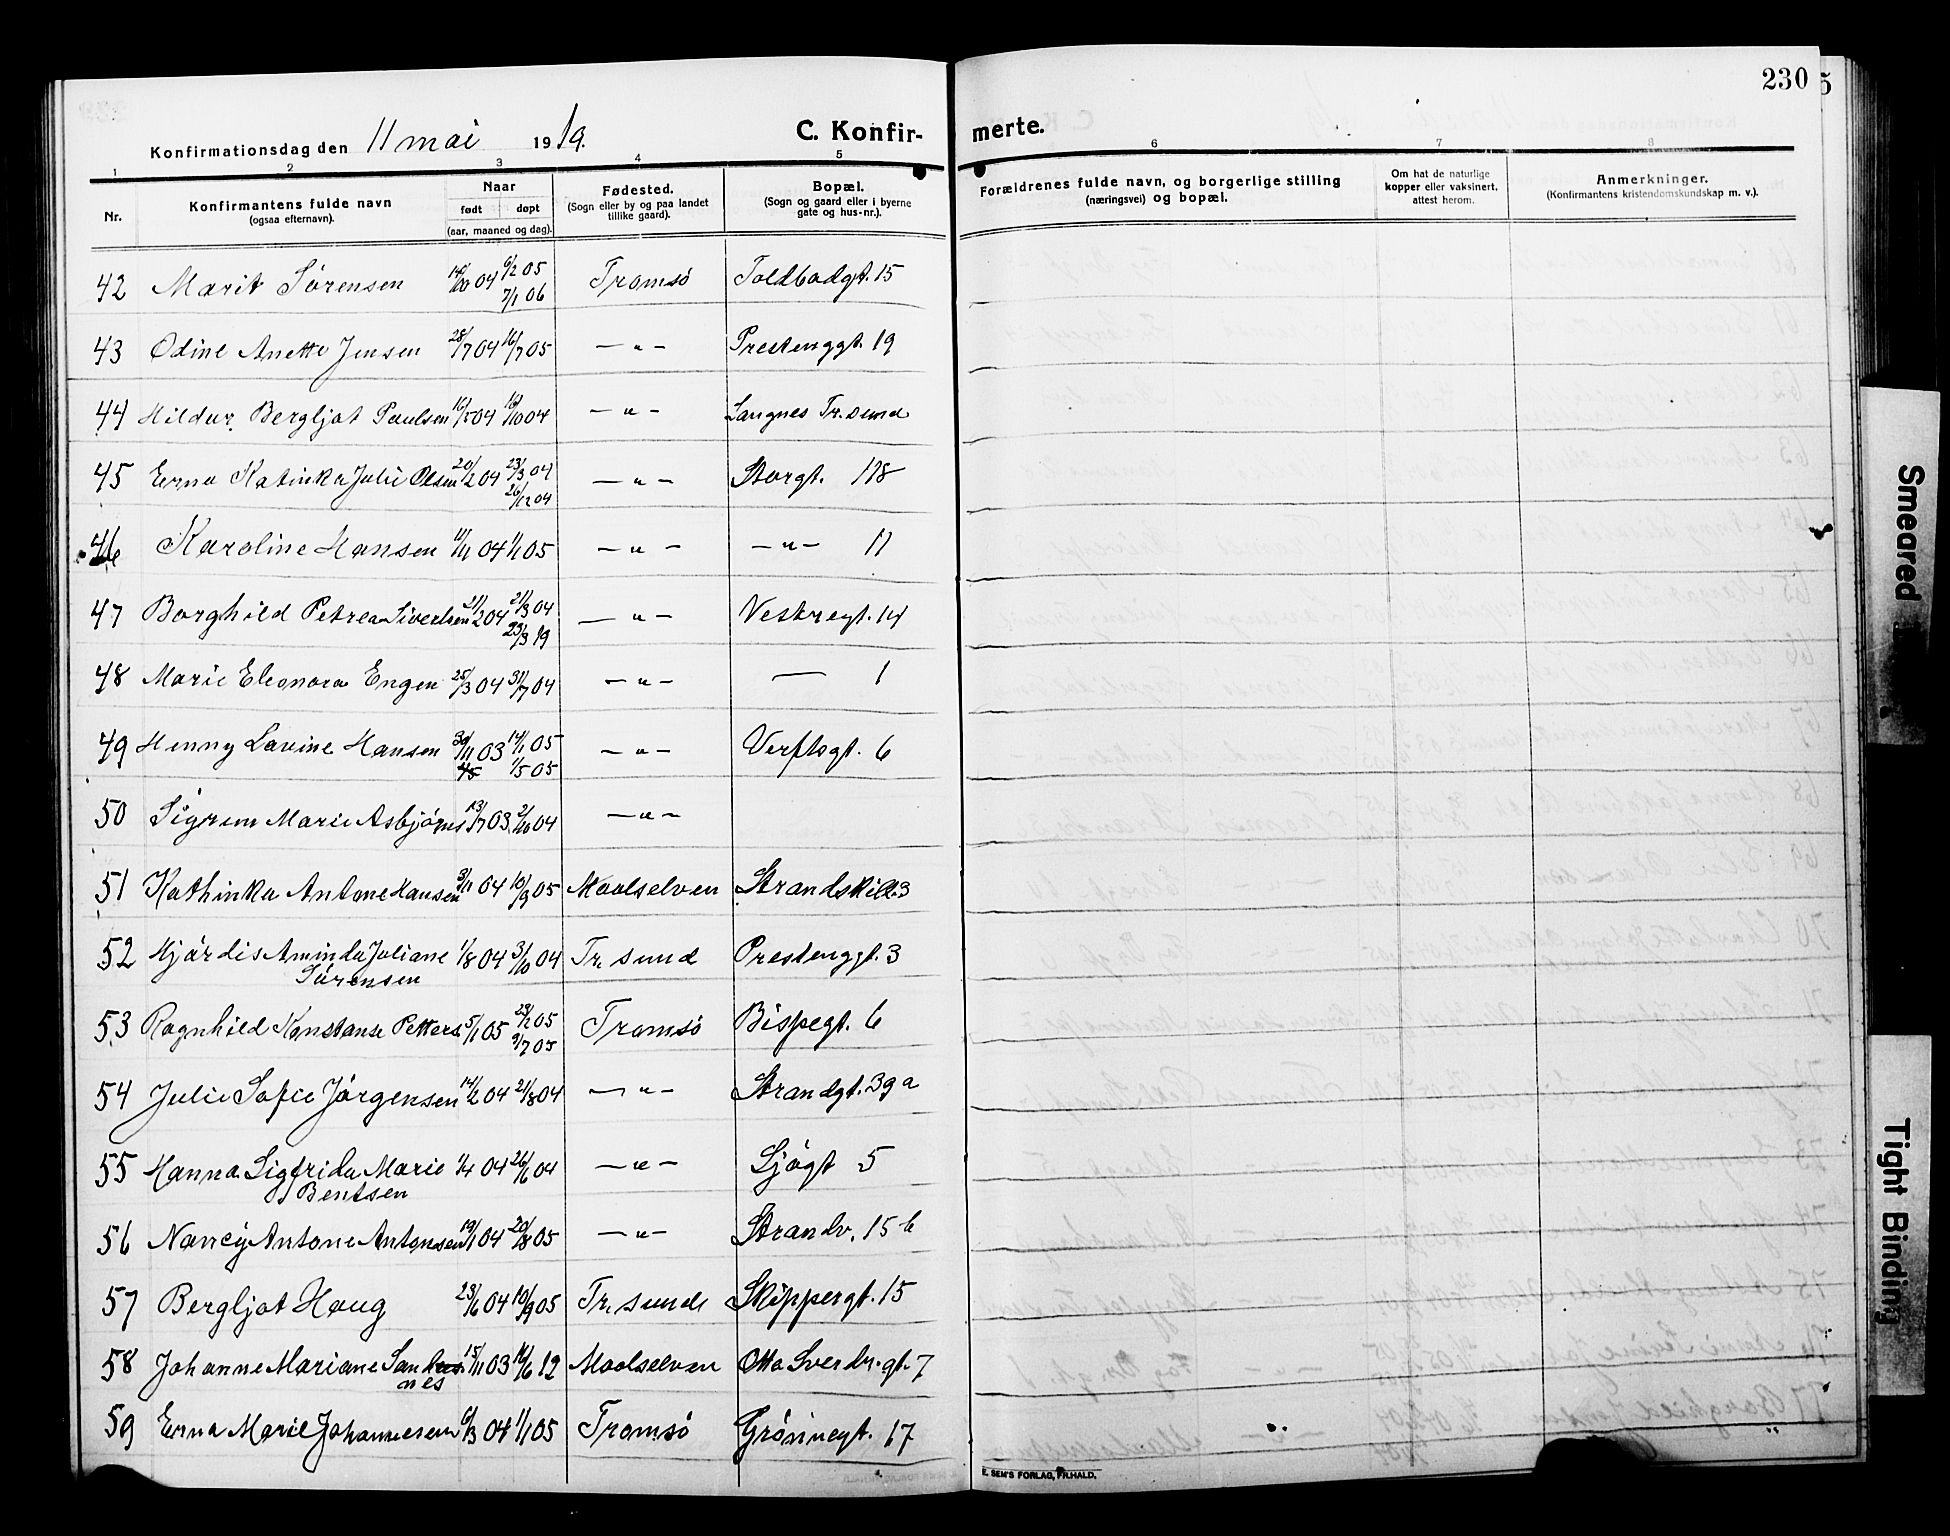 230
Konfirmationsdag den 11 mai 1919.
C. Konfir-
merte.
1 2 3 4 5 6 7 8
Nr.
Konfirmantens fulde navn
(ogsaa efternavn).
Naar
født døpt
(aar, maaned og dag).
Fødested.
(Sogn eller by og paa landet
tillike gaard).
Bopæl.
(Sogn og gaard eller i byerne
gate og hus-nr.).
Forældrenes fulde navn, og borgerlige stilling
(næringsvei) og bopæl.
Om hat de naturlige
kopper eller vaksinert,
attest herom.
Anmerkninger.
(Konfirmantens kristendomskundskap m. v.).
42 Marit Sørensen 14/10 04 6/2 05 Tromsö Toldbodgt. 15
7/1 06
43 Odine Anette Jensen 28/7 04 16/7 05 — „ — Prestenggt. 19
44 Hildur Bergljot Paulsen 16/5 04 16/10 04 — „ — Langnes Tr.sund
45 Erna Katinka Julie Olsen 20/2 04 23/3 04 — „ — Storgt. 118
26/12 04
46 Karoline Hansen 11/11 04 1/1 05 — „ — — „ — 11
47 Borghild Petrea Sivertsen 21/2 04 21/3 04 — „ — Vestregt. 14
23/3 19
48 Marie Eleonora Engen 25/3 04 31/7 04 — „ — — 1
49 Henny Lavine Hansen 30/11 03 14/1 05 — „ — Verftsgt. 6
1/5 05
50 Sigrun Marie Asbjørns 13/7 03 2/10 04 — „ —
51 Kathinka Antone Hansen 3/11 04 10/9 05 Maalselven Strandskill. 3
52 Hjördis Aminda Juliane 1/8 04 3/10 04 Tr. sund Prestenggt. 3
Sørensen
53 Ragnhild Konstanse Petters 5/1 05 23/2 05 Tromsö Bispegt. 6
9/7 05
54 Julie Sofie Jørgensen 14/2 04 21/8 04 — „ — Strandgt. 39 a
55 Hanna Sigfrida Marie 1/4 04 26/6 04 — „ — Sjøgt 5
Bentsen
56 Nancy Antone Antonsen 19/1 04 20/8 05 — „ — Strandv. 15 b
57 Bergljot Haug 23/6 04 10/9 05 Tr. sund Skippergt. 15
58 Johanne Mariane Sand 15/11 03 16/6 12 Maalselven Otto Sverdr. gt. 7
nes
59 Erna Marie Johannesen 6/3 04 1/1 05 Tromsö Grønnegt. 17
E. SEM'S FORLAG, FR.HALD.
Smeared
Tight Binding